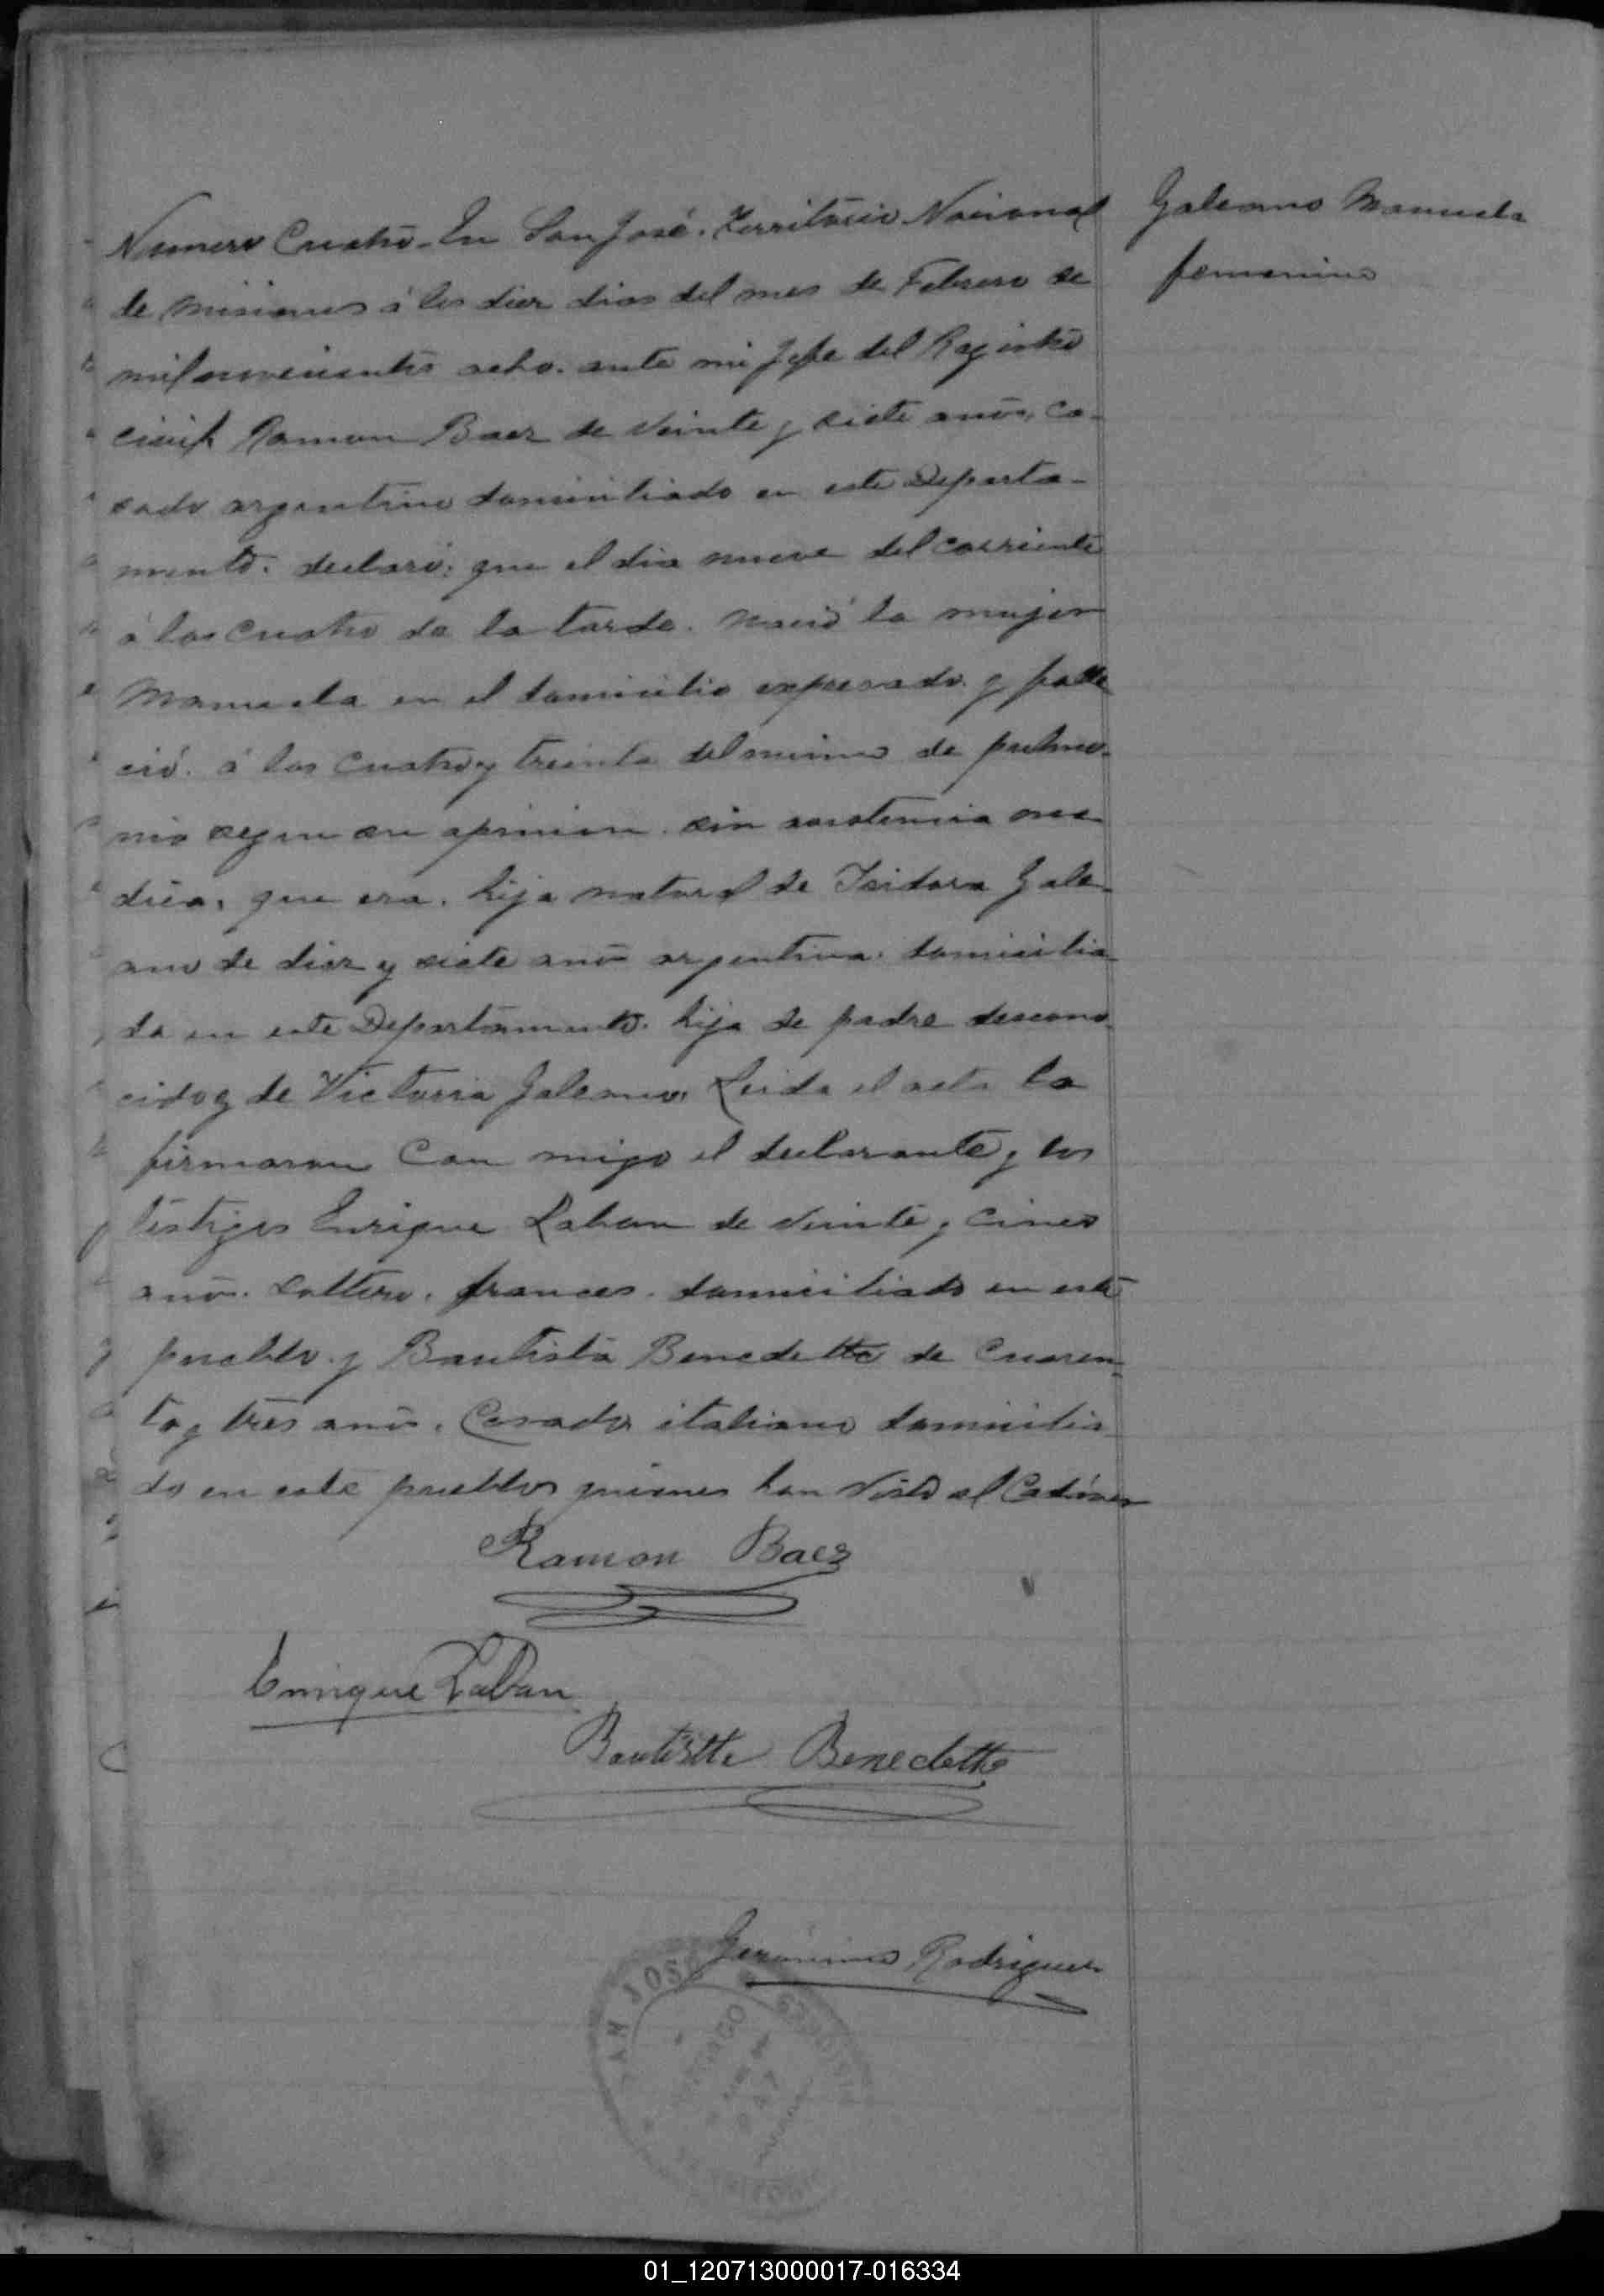 Galeano Manuela
femenino
Numero Cuatro. En San José. Territorio Nacional
de Misiones á los diez dias del mes de Febrero de
mil novecientos ocho. ante mi Jefe del Registro
civil Ramon Baez de veinte y siete años, ca-
sado argentino domiciliado en este Departa-
mento. declaró: que el dia nueve del corriente
á las cuatro de la tarde. nació la mujer
Manuela en el domicilio expresado y falle
ció. á las cuatro y treinta del mismo de pulmo-
nia segun su opinion. sin asistencia me
dica. que era. hija natural de Isidora Gale-
ano de diez y siete años argentina. domicilia-
da en este Departamento. hija de padre descono-
cido y de Victoria Galeano. Leida el acta la
firmaron con migo el declarante y los
testigos Enrique Laban de veinte y cinco
años. soltero. frances. domiciliado en este
pueblo y Bautista Benedette de cuaren-
ta y tres años. Casado italiano domicilia
do en este pueblo quienes han visto el Cadáver
Ramon Baez
Enrique Laban
Bautistte Benedette
Geronimo Rodriguez
SAN JOSÉ
MISIONES
01_120713000017-016334